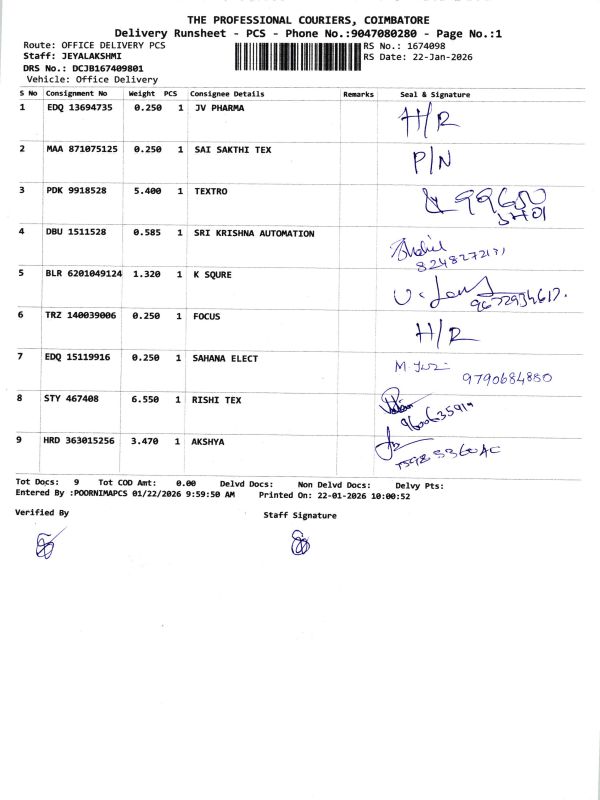 THE PROFESSIONAL COURIERS, COIMBATORE
Delivery Runsheet - PCS - Phone No.:9047080280 - Page No.:1
Route: OFFICE DELIVERY PCS RS No.: 1674098
Staff: JEYALAKSHMI RS Date: 22-Jan-2026
DRS No.: DCJB167409801
Vehicle: Office Delivery
S No Consignment No Weight PCS Consignee Details Remarks Seal & Signature
1 EDQ 13694735 0.250 1 JV PHARMA H/R
2 MAA 871075125 0.250 1 SAI SAKTHI TEX P/N
3 PDK 9918528 5.400 1 TEXTRO
4 DBU 1511528 0.585 1 SRI KRISHNA AUTOMATION
5 BLR 6201049124 1.320 1 K SQURE
6 TRZ 140039006 0.250 1 FOCUS H/R
7 EDQ 15119916 0.250 1 SAHANA ELECT
9790684880
8 STY 467408 6.550 1 RISHI TEX
9 HRD 363015256 3.470 1 AKSHYA
Tot Docs: 9 Tot COD Amt: 0.00 Delvd Docs: Non Delvd Docs: Delvy Pts:
Entered By :POORNIMAPCS 01/22/2026 9:59:50 AM Printed On: 22-01-2026 10:00:52
Verified By Staff Signature